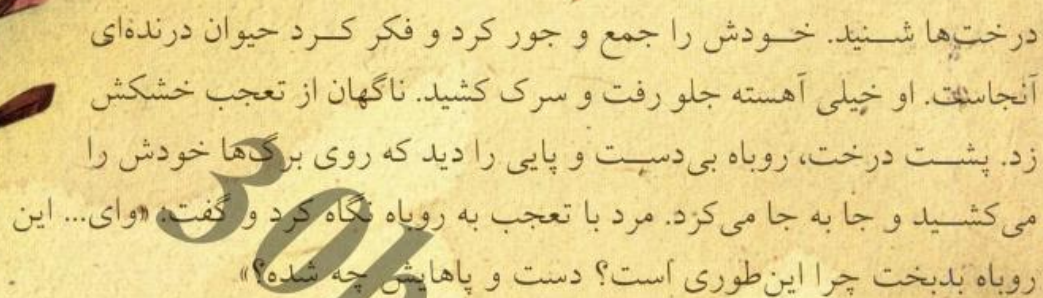 درخت‌ها شنید. خودش را جمع و جور کرد و فکر کرد حیوان درنده‌ای
آنجاست. او خیلی آهسته جلو رفت و سرک کشید. ناگهان از تعجب خشکش
زد. پشت درخت، روباه بی‌دست و پایی را دید که روی برگ‌ها خودش را
می‌کشید و جا به جا می‌کرد. مرد با تعجب به روباه نگاه کرد و گفت: «وای... این
روباه بدبخت چرا این‌طوری است؟ دست و پاهایش چه شده؟»